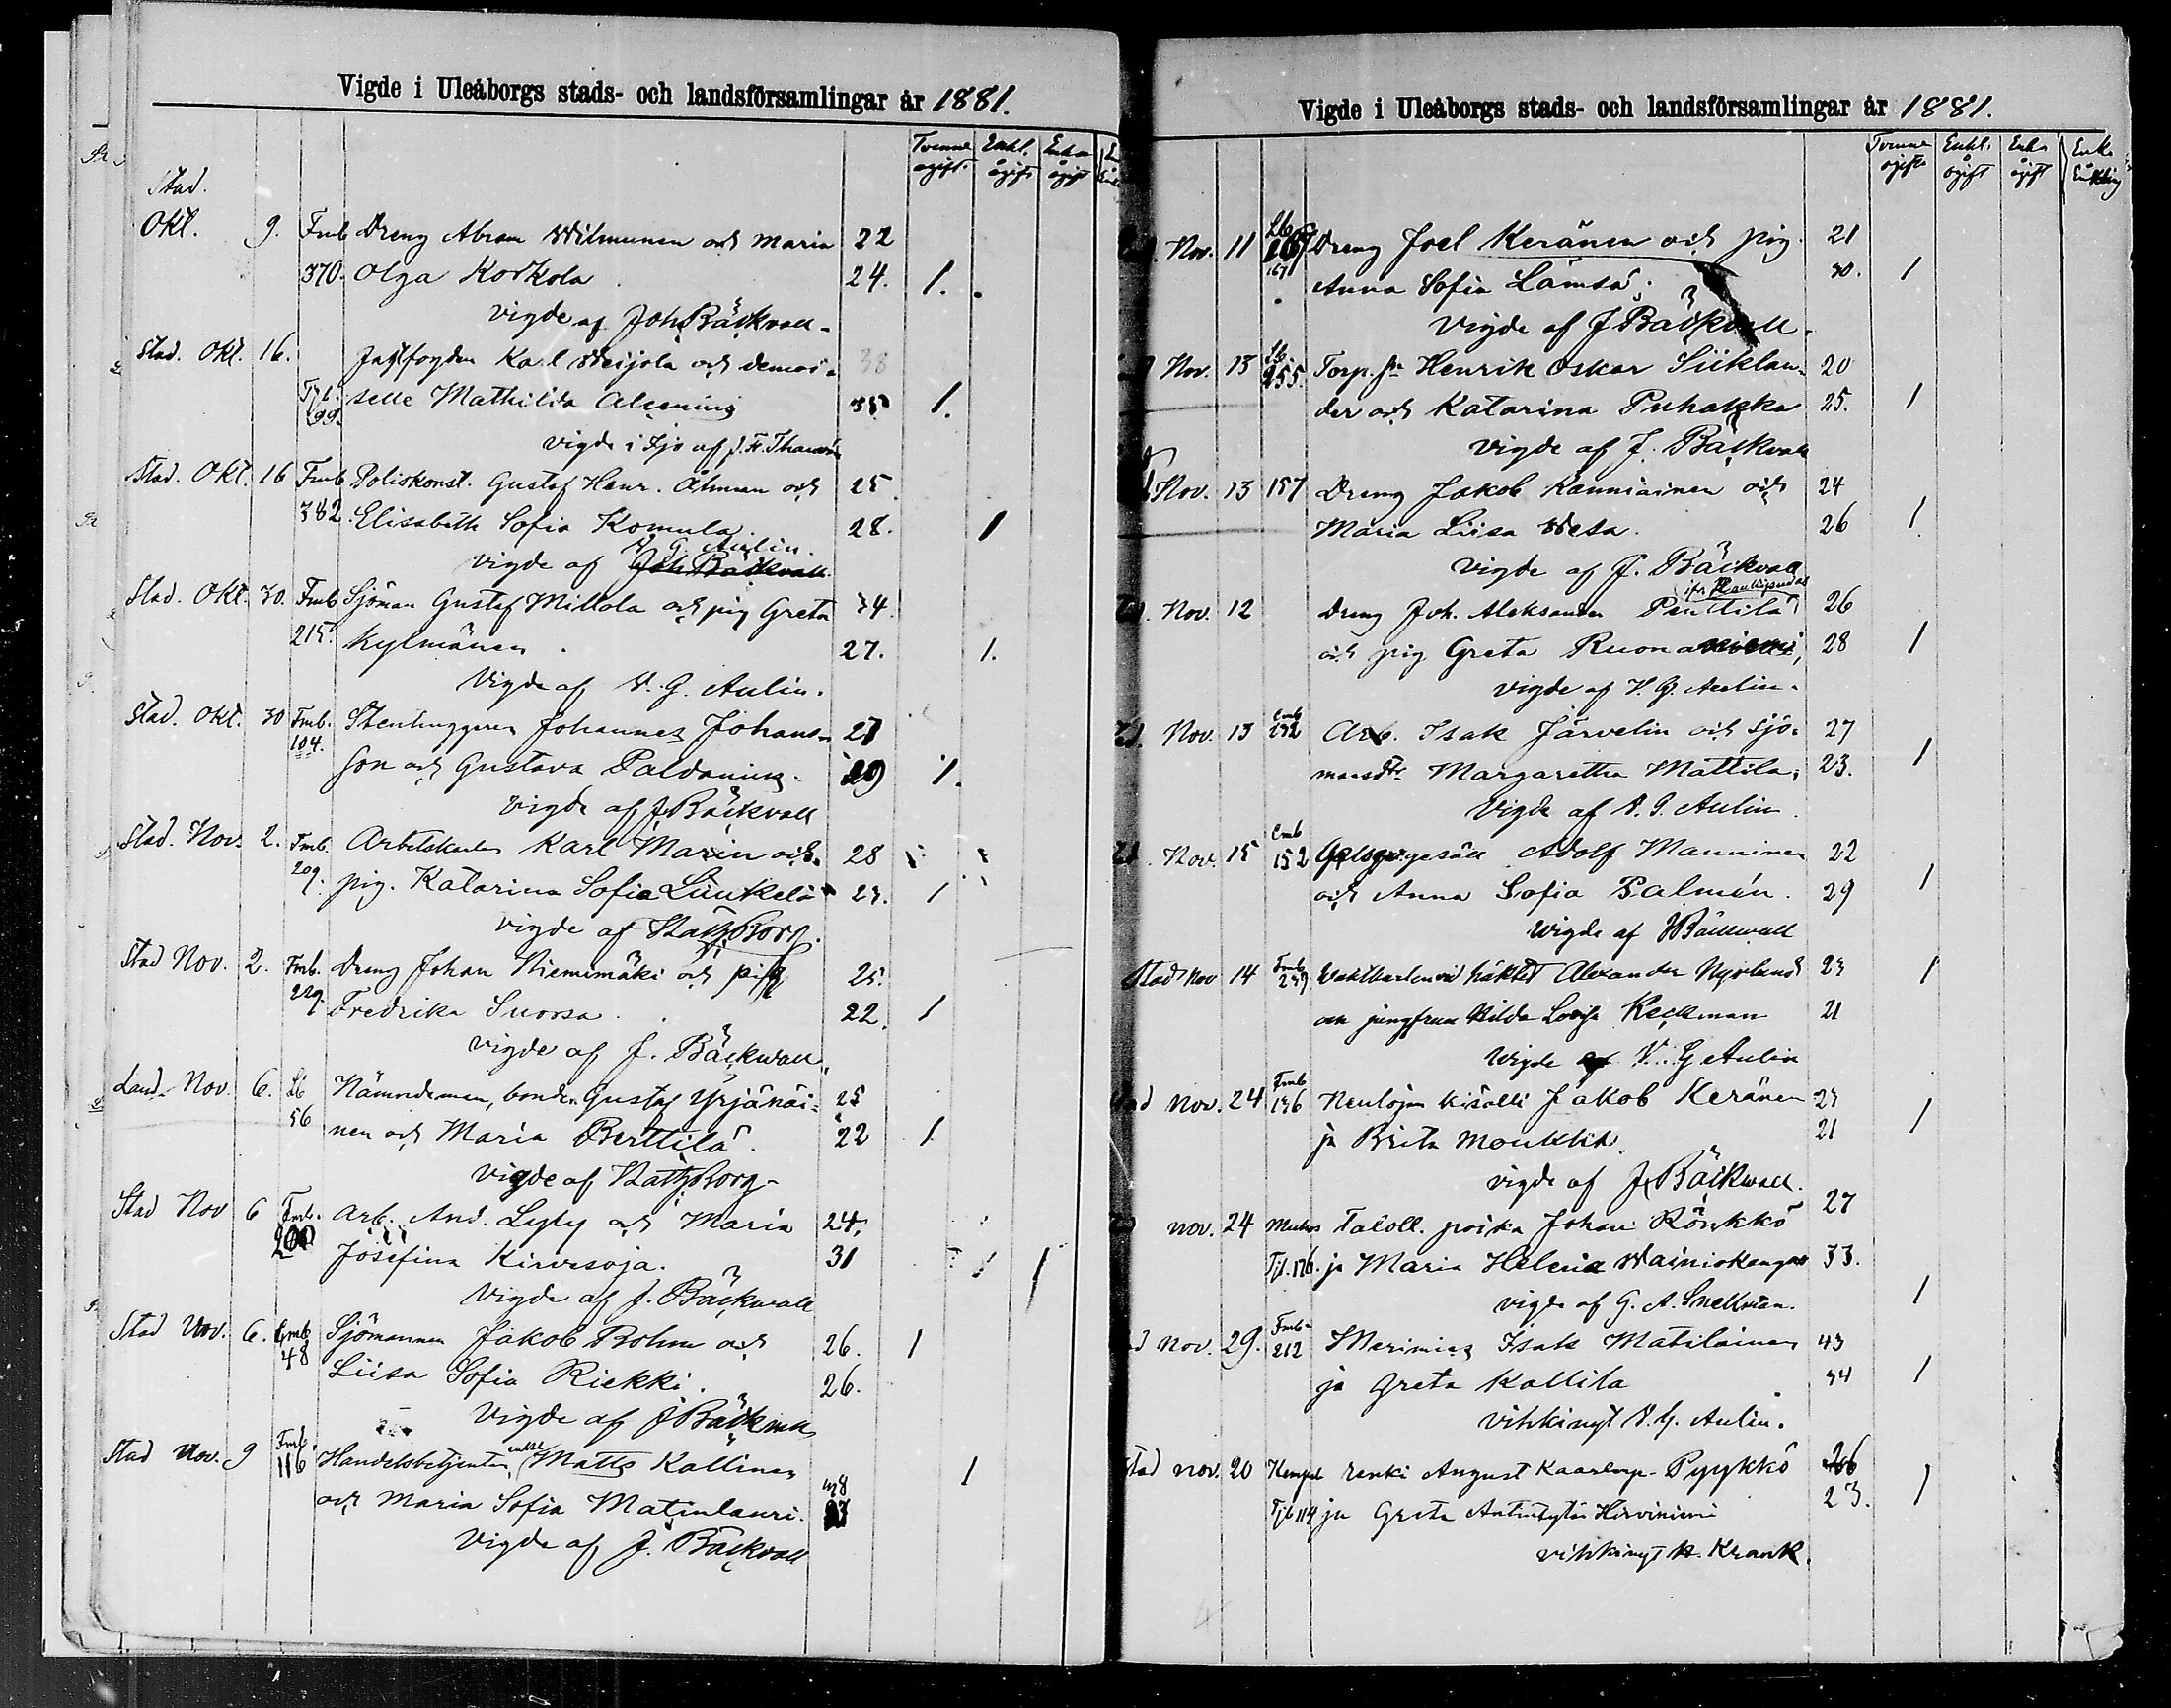 Vigde i Uleåborgs stads- och landsförsamlingar år 1881.
Tvenne ogift. Enkl. ogift Enka ogift
Stad.
Okt. 9. Fmb Dreng Abram Wilmunen och Maria 22
370. Olga Korkola 24. 1.
Vigde af Joh Bäckvall
Stad. Okt. 16. Karl Weijola och demoi- 38
99. selle Mathilda Alcenius 35 1.
vigde i Ijo af J. F. Thauvón
Stad. Okt. 16 Fmb Poliskonst. Gustaf Henr. Åhman och 25
382 Elisabeth Sofia Komula. 28. 1
V. G. Aulin.
vigde af Joh Bäckvall
Stad. Okt. 30. Fmb Sjöman Gustaf Mittola och pig Greta 34.
215. Kylmänen. 27. 1.
Vigde af V. G. Aulin.
Stad. Okt. 30 Fmb. Stenhuggeren Johannes Johans-
104. son och Gustava Paldanius. 29 1.
Vigde af J. Bäckvall
Stad. Nov. 2. Fmb. Arbetskarlen Karl Marin och 28
209. pig. Katarina Sofia Liukelä 23. 1
vigde af
Stad Nov. 2. Fmb. Dreng Johan Niemimäki och pig 25.
229. Fredrika Suorsa. 22. 1
vigde af J. Bäckwall
Land. Nov. 6. Lb Nämndeman, bonden Gustaf Yrjänäi- 25
56 nen och Maria Perttilä. 22 1
Vigde af
Stad Nov 6 Fmb. Arb. And. Lyly och Maria 24.
200 Josefina Kirvesoja. 31 1
Vigde af J. Bäckwall
Stad Nov. 6. Fmb Sjömannen Jakob Bohm och 26. 1
48 Liisa Sofia Riekki. 26.
Vigde af J Bäckvall
Stad Nov. 9 Fmb. Handelsbetjenten, enkl. Matts Kallinen
116 och Maria Sofia Matinlauri. 1
Vigde af J. Bäckvall
Vigde i Uleåborgs stads- och landsförsamlingar år 1881.
Tvenne ogifte Enkl. å ogift Enka ogift Enka Enkling
Nov. 11 Lb Dreng Joel Keränen och pig. 21
167 Anna Sofia Lämsä. 30. 1
Vigde af J Bäckvall.
Nov. 13 Lb 255. Torp. sn Henrik Oskar Siiklan- 20
der och Katarina Puhakka 25. 1
Vigde af J. Bäckvall
Nov. 13 157 Dreng Jakob Kauniainen och 24
Maria Liisa Wesa. 26 1
Vigde af J. Bäckvall
ifr. Haukipudas
Nov. 12 Dreng Joh. Aleksander Penttilä 26
och pig Greta Ruonaniemi, 28 1
vigde af V. G. Aulin.
Nov. 13 Fmb 232 Arb. Isak Järvelin och sjö- 27
mansdtr. Margaretha Mattila, 23. 1
Vigde af V. G. Aulin.
Nov. 15 Fmb 152 gesäll Adolf Manninen 22
och Anna Sofia Palmén. 29 1
Wigde af J Bäckwall
Stad Nov 14 Fmb 259 Waktkarlen vid häktet Alexander Nyrlund 23 1
och jungfrun Hilda Lovisa Keckman 21
Wigde af V. G Aulin
nov. 24 Fmb 136 Neulojan kisälli Jakob Keränen 23
ja Brita Moukka 21 1
vigde af J. Bäckwall.
nov. 24 Muhos Taloll. poika Johan Rönkkö 27
Tjl. 176. ja Maria Helena Wainiokangas 33. 1
vigde af G. A. Snellman.
nov. 29. Fmb. 212 Merimies Isak Matilainen 43
ja Greta Kallila 34 1
vihkinyt V. G. Aulin.
Stad nov. 20 Kempele renki August Kaarlenp. Pyykkö 26
Tjl 114 ja Greta Antintytär Hirviniemi 23. 1
vihkinyt H. Krank.